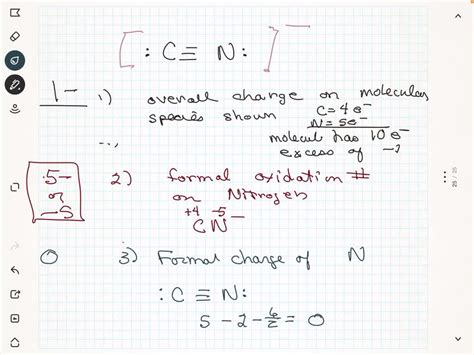 [:C≡N:]⁻
1- 1) overall charge on molecular
species shown C=4e⁻
N=5e⁻
molecul has 10 e⁻
excess of -1
2) formal oxidation #
on Nitrogen
.5-
or
-5
+4 -5
CN⁻
0 3) Formal charge of N
:C≡N:
5-2-6/2=0
25 / 25